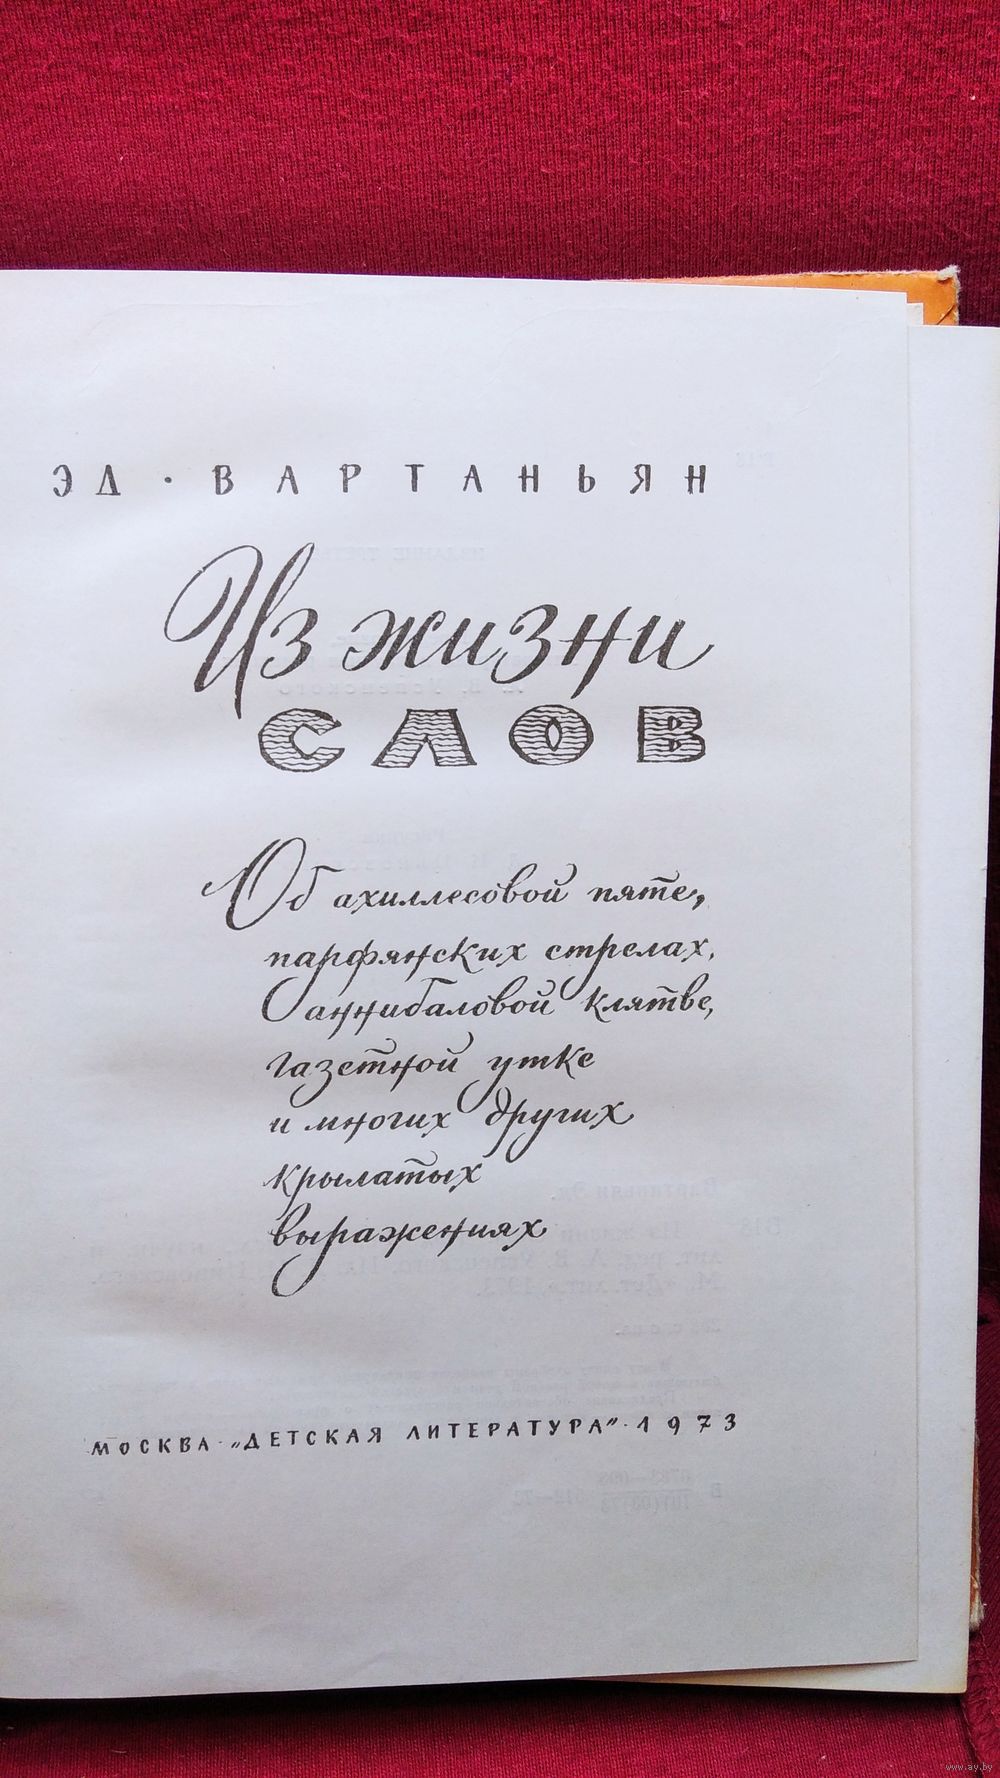 ЭД · ВАРТАНЬЯН
Из жизни
СЛОВ
Об ахиллесовой пяте,
парфянских стрелах,
аннибаловой клятве,
газетной утке
и многих других
крылатых
выражениях
МОСКВА · „ДЕТСКАЯ ЛИТЕРАТУРА" · 1973
www.ay.by